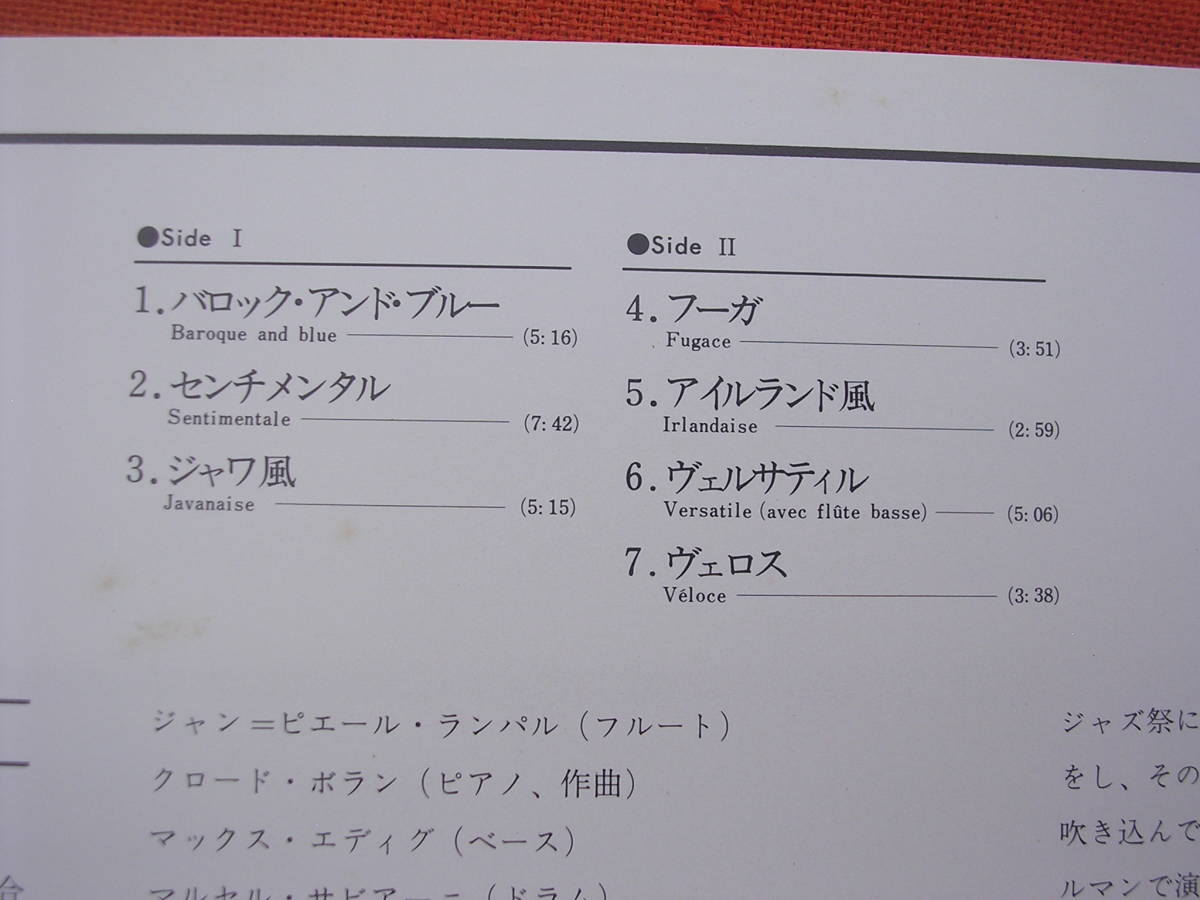 ●Side Ⅰ
1.バロック・アンド・ブルー
Baroque and blue (5:16)
2.センチメンタル
Sentimentale (7:42)
3.ジャワ風
Javanaise (5:15)
●Side Ⅱ
4.フーガ
Fugace (3:51)
5.アイルランド風
Irlandaise (2:59)
6.ヴェルサティル
Versatile (avec flûte basse) (5:06)
7.ヴェロス
Véloce (3:38)
ジャン=ピエール・ランパル(フルート)
クロード・ボラン(ピアノ、作曲)
マックス・エディグ(ベース)
マルセル・サビアーニ(ドラム)
ジャズ祭に
をし、その
吹き込んで
ルマンで演